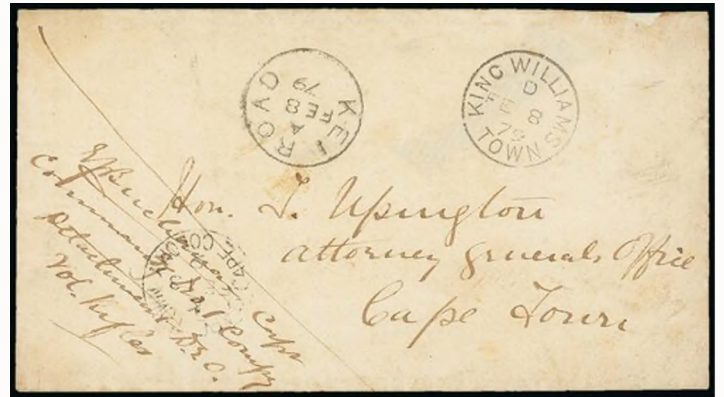 KEI ROAD
A
FE 8
79
KING WILLIAMS TOWN
D
FE 8
79
Hon. T. Upington
Attorney Generals Office
Cape Town
Capt
Commanding Compy
Detachment D.E.O.
Vol. Rifles
CAPE CO